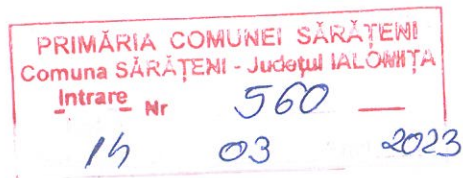 PRIMĂRIA COMUNEI SĂRĂŢENI
Comuna SĂRĂŢENI - Judeţul IALOMIŢA
Intrare Nr 560
14 03 2023